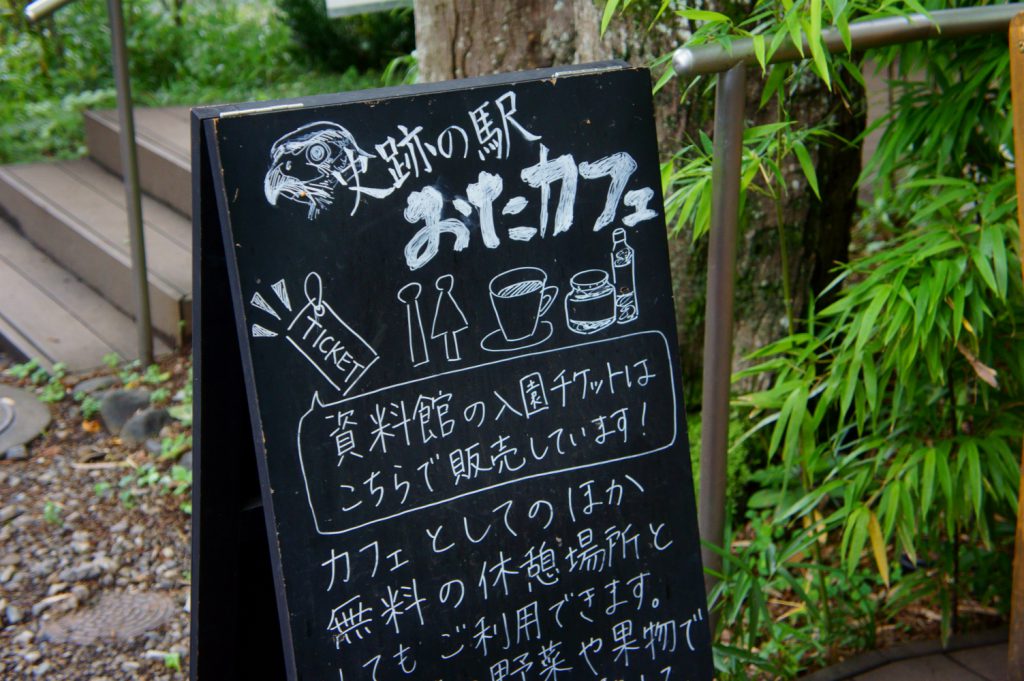 史跡の駅
おたカフェ
TICKET
資料館の入園チケットは
こちらで販売しています!
カフェとしてのほか
無料の休憩場所と
してもご利用できます。
野菜や果物で